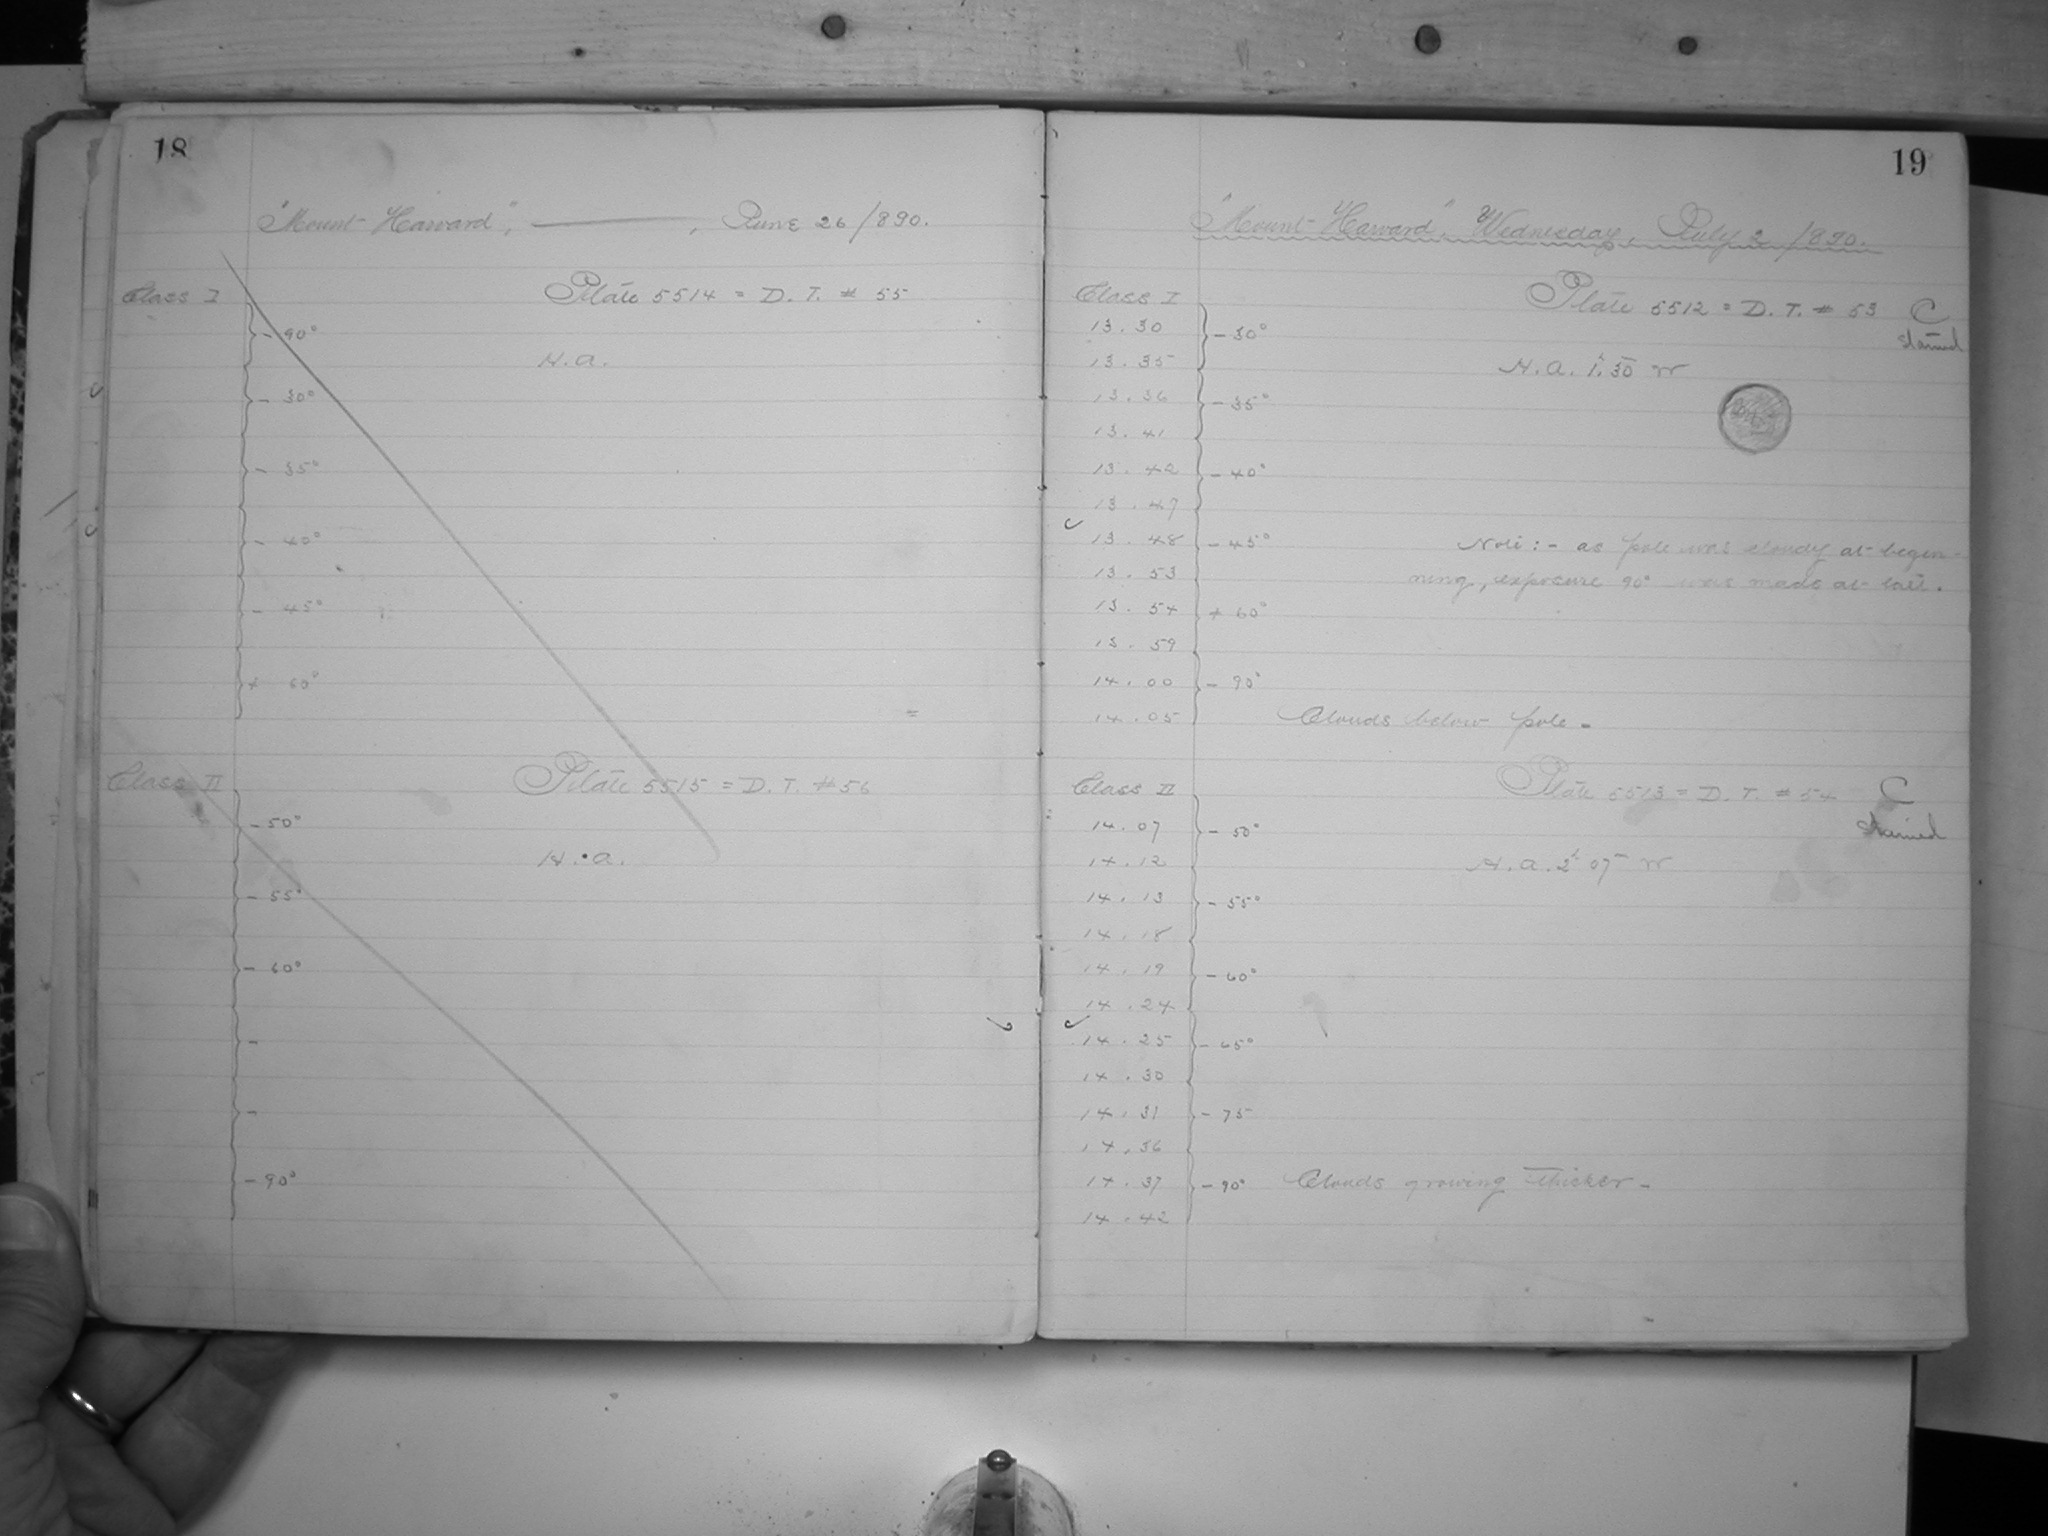 18
"Mount Harvard", ———, June 26/890.
Class I
Plate 5514 = D. T. # 55
- 90°
H.a.
- 30°
- 35°
- 40°
- 45°
+ 60°
=
Class II
Plate 5515 = D. T. # 56
- 50°
H.a.
- 55°
- 60°
-
-
- 90°
19
"Mount-Harvard", Wednesday, July 2 /890.
Class I
Plate 5512 = D. T. # 53 C
stained
13.30 - 30°
13.35 H.a. 1h 30m W
13.36 - 35°
13.41
13.42 - 40°
13.47
13.48 - 45°
Note: - as pole was cloudy at begin-
13.53
ning, exposure 90° was made at last.
13.54 + 60°
13.59
14.00 - 90°
14.05 Clouds below pole -
Class II
Plate 5513 = D. T. # 54 C
stained
14.07 - 50°
14.12 H.a. 2h 07m W
14.13 - 55°
14.18
14.19 - 60°
14.24
14.25 - 65°
14.30
14.31 - 75
14.36
14.37 - 90° Clouds growing thicker -
14.42